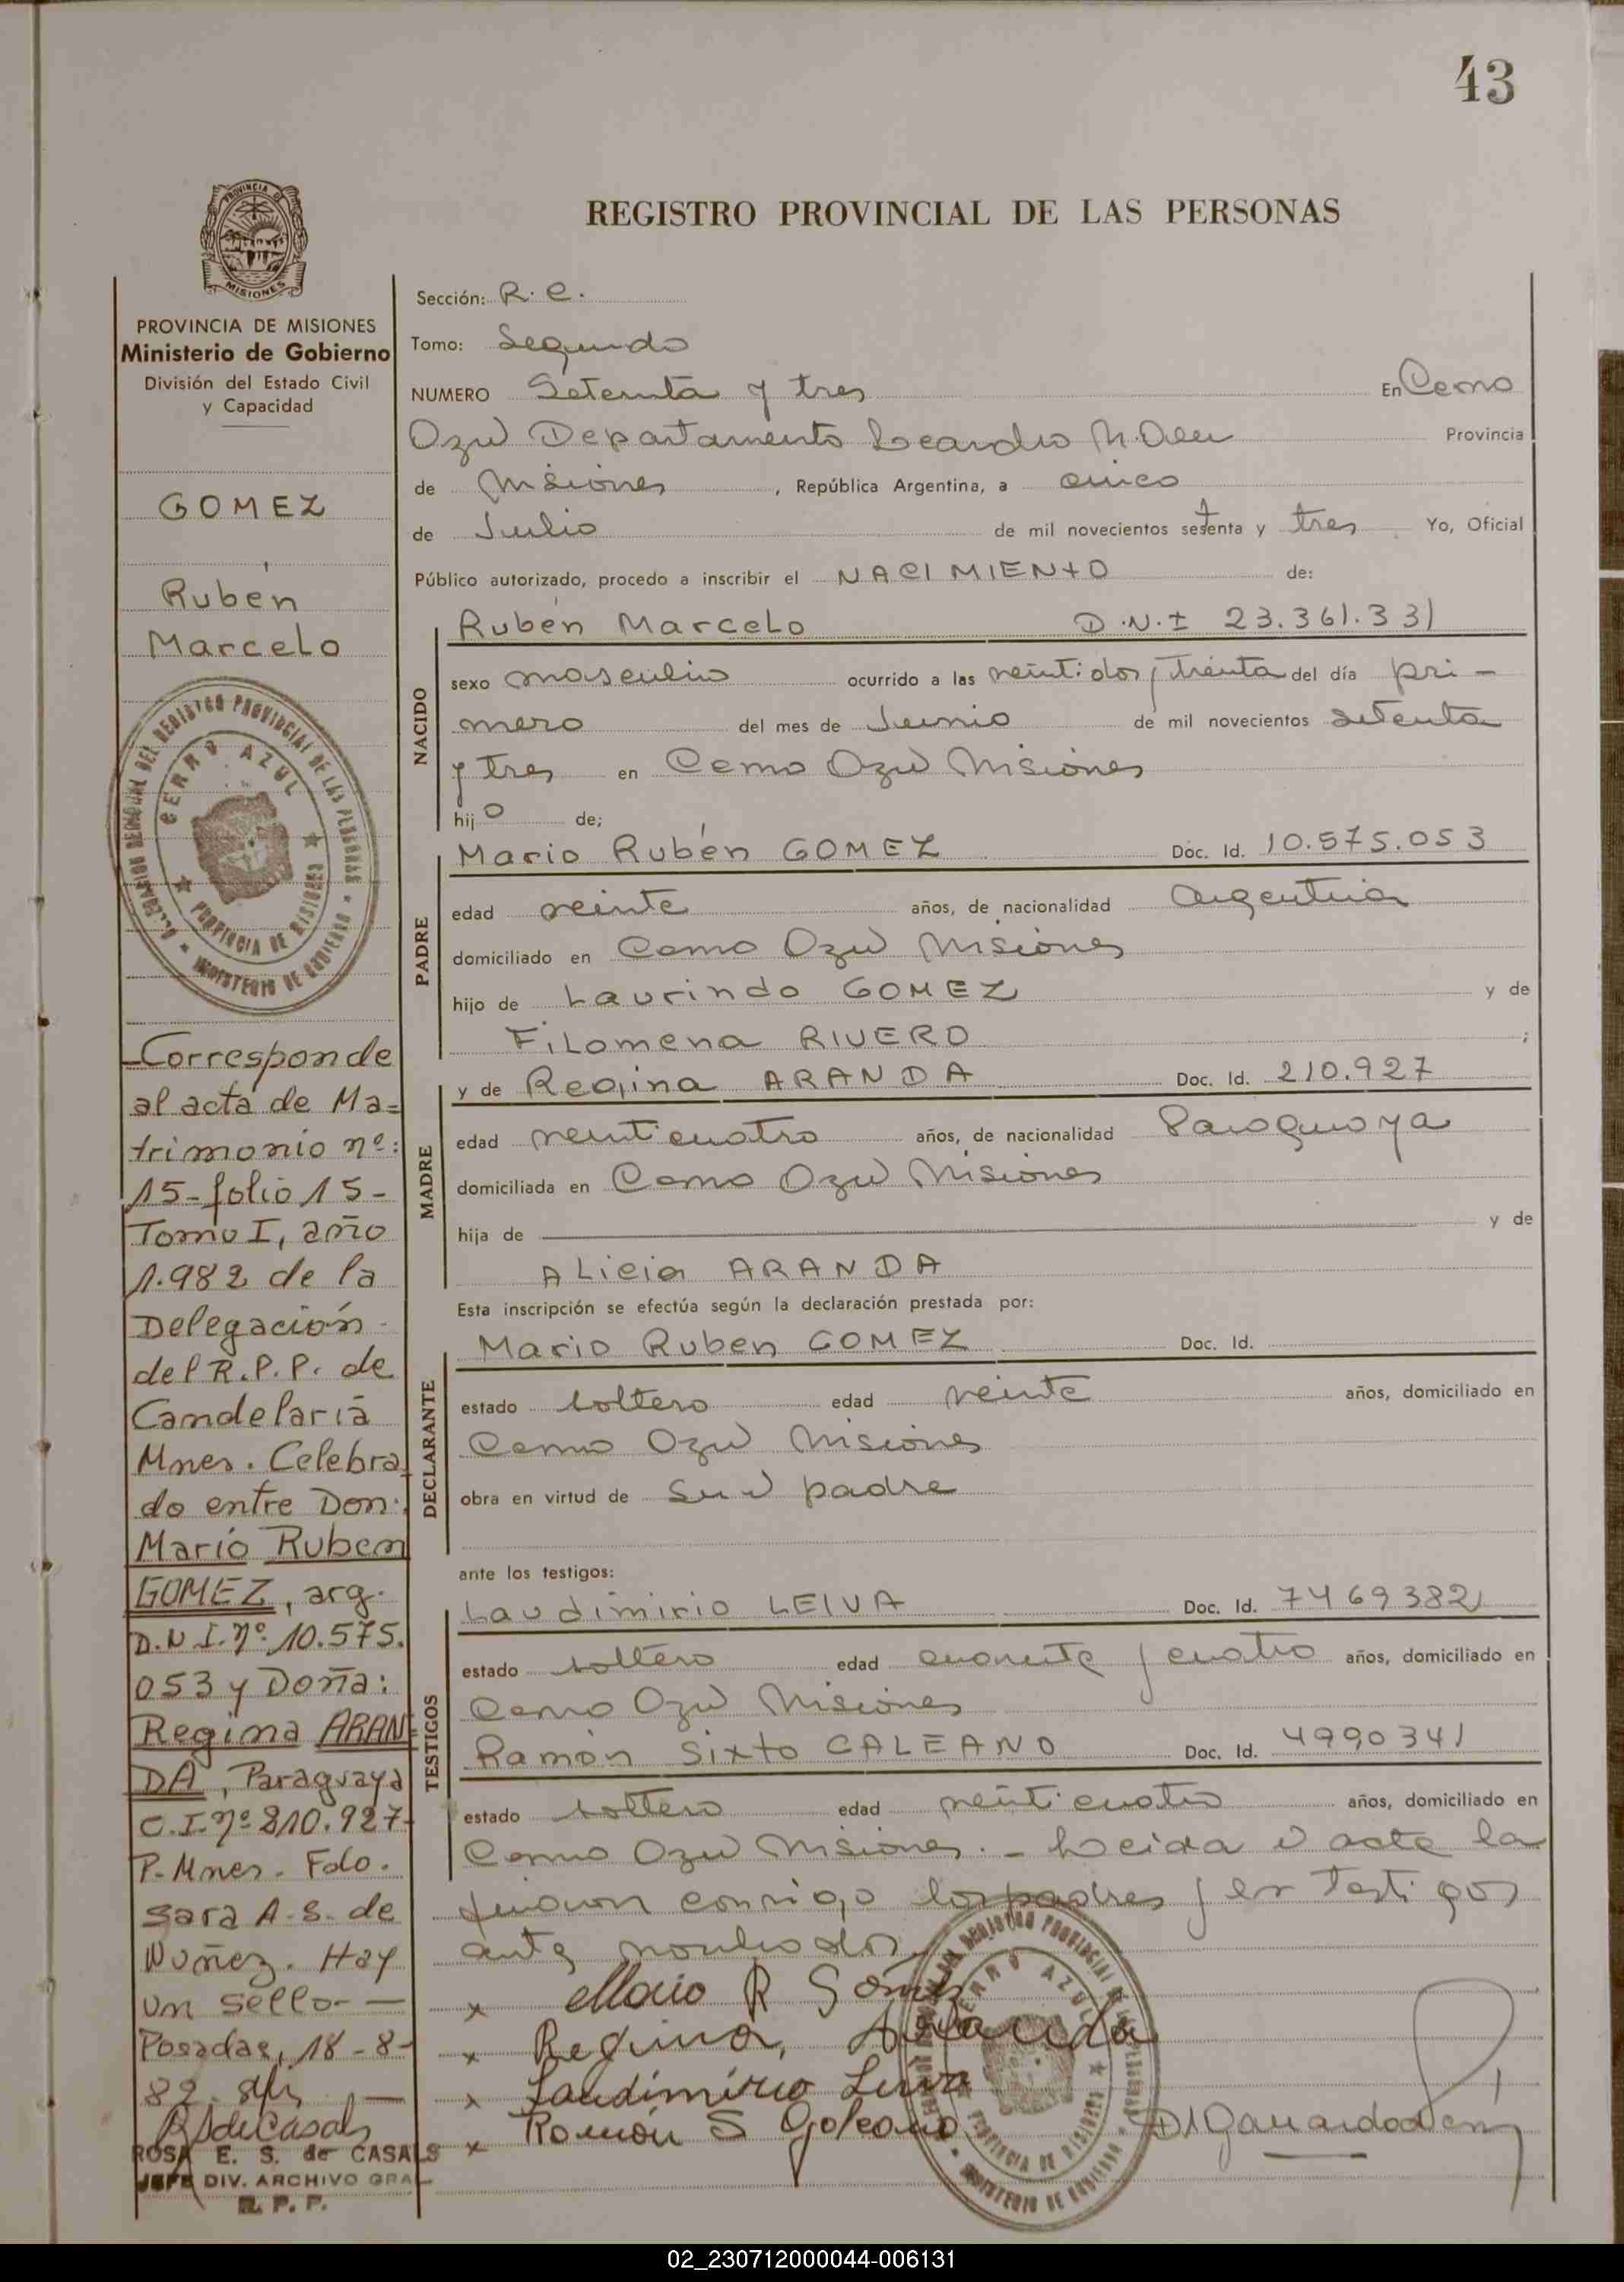 43
PROVINCIA DE
MISIONES
REGISTRO PROVINCIAL DE LAS PERSONAS
PROVINCIA DE MISIONES
Ministerio de Gobierno
División del Estado Civil
y Capacidad
GOMEZ
Rubén
Marcelo
CERRO AZUL
PROVINCIA DE MISIONES
MINISTERIO DE GOBIERNO
Corresponde
al acta de Ma=
trimonio nº:
15-folio 15-
Tomo I, año
1.982 de la
Delegación
del R.P.P. de
Candelaria
Mnes. Celebra
do entre Don:
Mario Ruben
GOMEZ, arg.
D.N.I. nº 10.575.
053 y Doña:
Regina ARAN=
DA, Paraguaya
C.I. nº 210.927-
P. Mnes. Fdo.
Sara A. S. de
Nuñez. Hay
un sello- —
Posadas, 18-8-
82.
RSdeCasals
ROSA E. S. de CASALS
JEFE DIV. ARCHIVO GRAL
R. P. P.
Sección: R. C.
Tomo: Segundo
NUMERO Setenta y tres En Cerro
Azul Departamento Leandro N. Alem Provincia
de Misiones, República Argentina, a cinco
de Julio de mil novecientos setenta y tres Yo, Oficial
Público autorizado, procedo a inscribir el NACIMIENTO de:
NACIDO
Rubén Marcelo D.N.I 23.361.331
sexo masculino ocurrido a las veintidos y treinta del día pri-
mero del mes de Junio de mil novecientos setenta
y tres en Cerro Azul Misiones
hijo de;
PADRE
Mario Rubén GOMEZ Doc. Id. 10.575.053
edad veinte años, de nacionalidad Argentina
domiciliado en Cerro Azul Misiones
hijo de Laurindo GOMEZ y de
Filomena RIVERO ;
MADRE
y de Regina ARANDA Doc. Id. 210.927
edad veinticuatro años, de nacionalidad Paraguaya
domiciliada en Cerro Azul Misiones
hija de — y de
Alicia ARANDA
Esta inscripción se efectúa según la declaración prestada por:
DECLARANTE
Mario Ruben GOMEZ Doc. Id.
estado soltero edad veinte años, domiciliado en
Cerro Azul Misiones
obra en virtud de ser el padre
ante los testigos:
TESTIGOS
Laudimirio LEIVA Doc. Id. 7469382
estado soltero edad cuarenta y cuatro años, domiciliado en
Cerro Azul Misiones
Ramón Sixto GALEANO Doc. Id. 4990341
estado soltero edad veinticuatro años, domiciliado en
Cerro Azul Misiones. - Leida el acta la
firman conmigo los padres y los testigos
ante nombrados
x Mario R Gómez
x Regina, Aranda
x Laudimirio Leiva
x Román S Galeano
CERRO AZUL
PROVINCIA DE MISIONES
MINISTERIO DE GOBIERNO
02_230712000044-006131